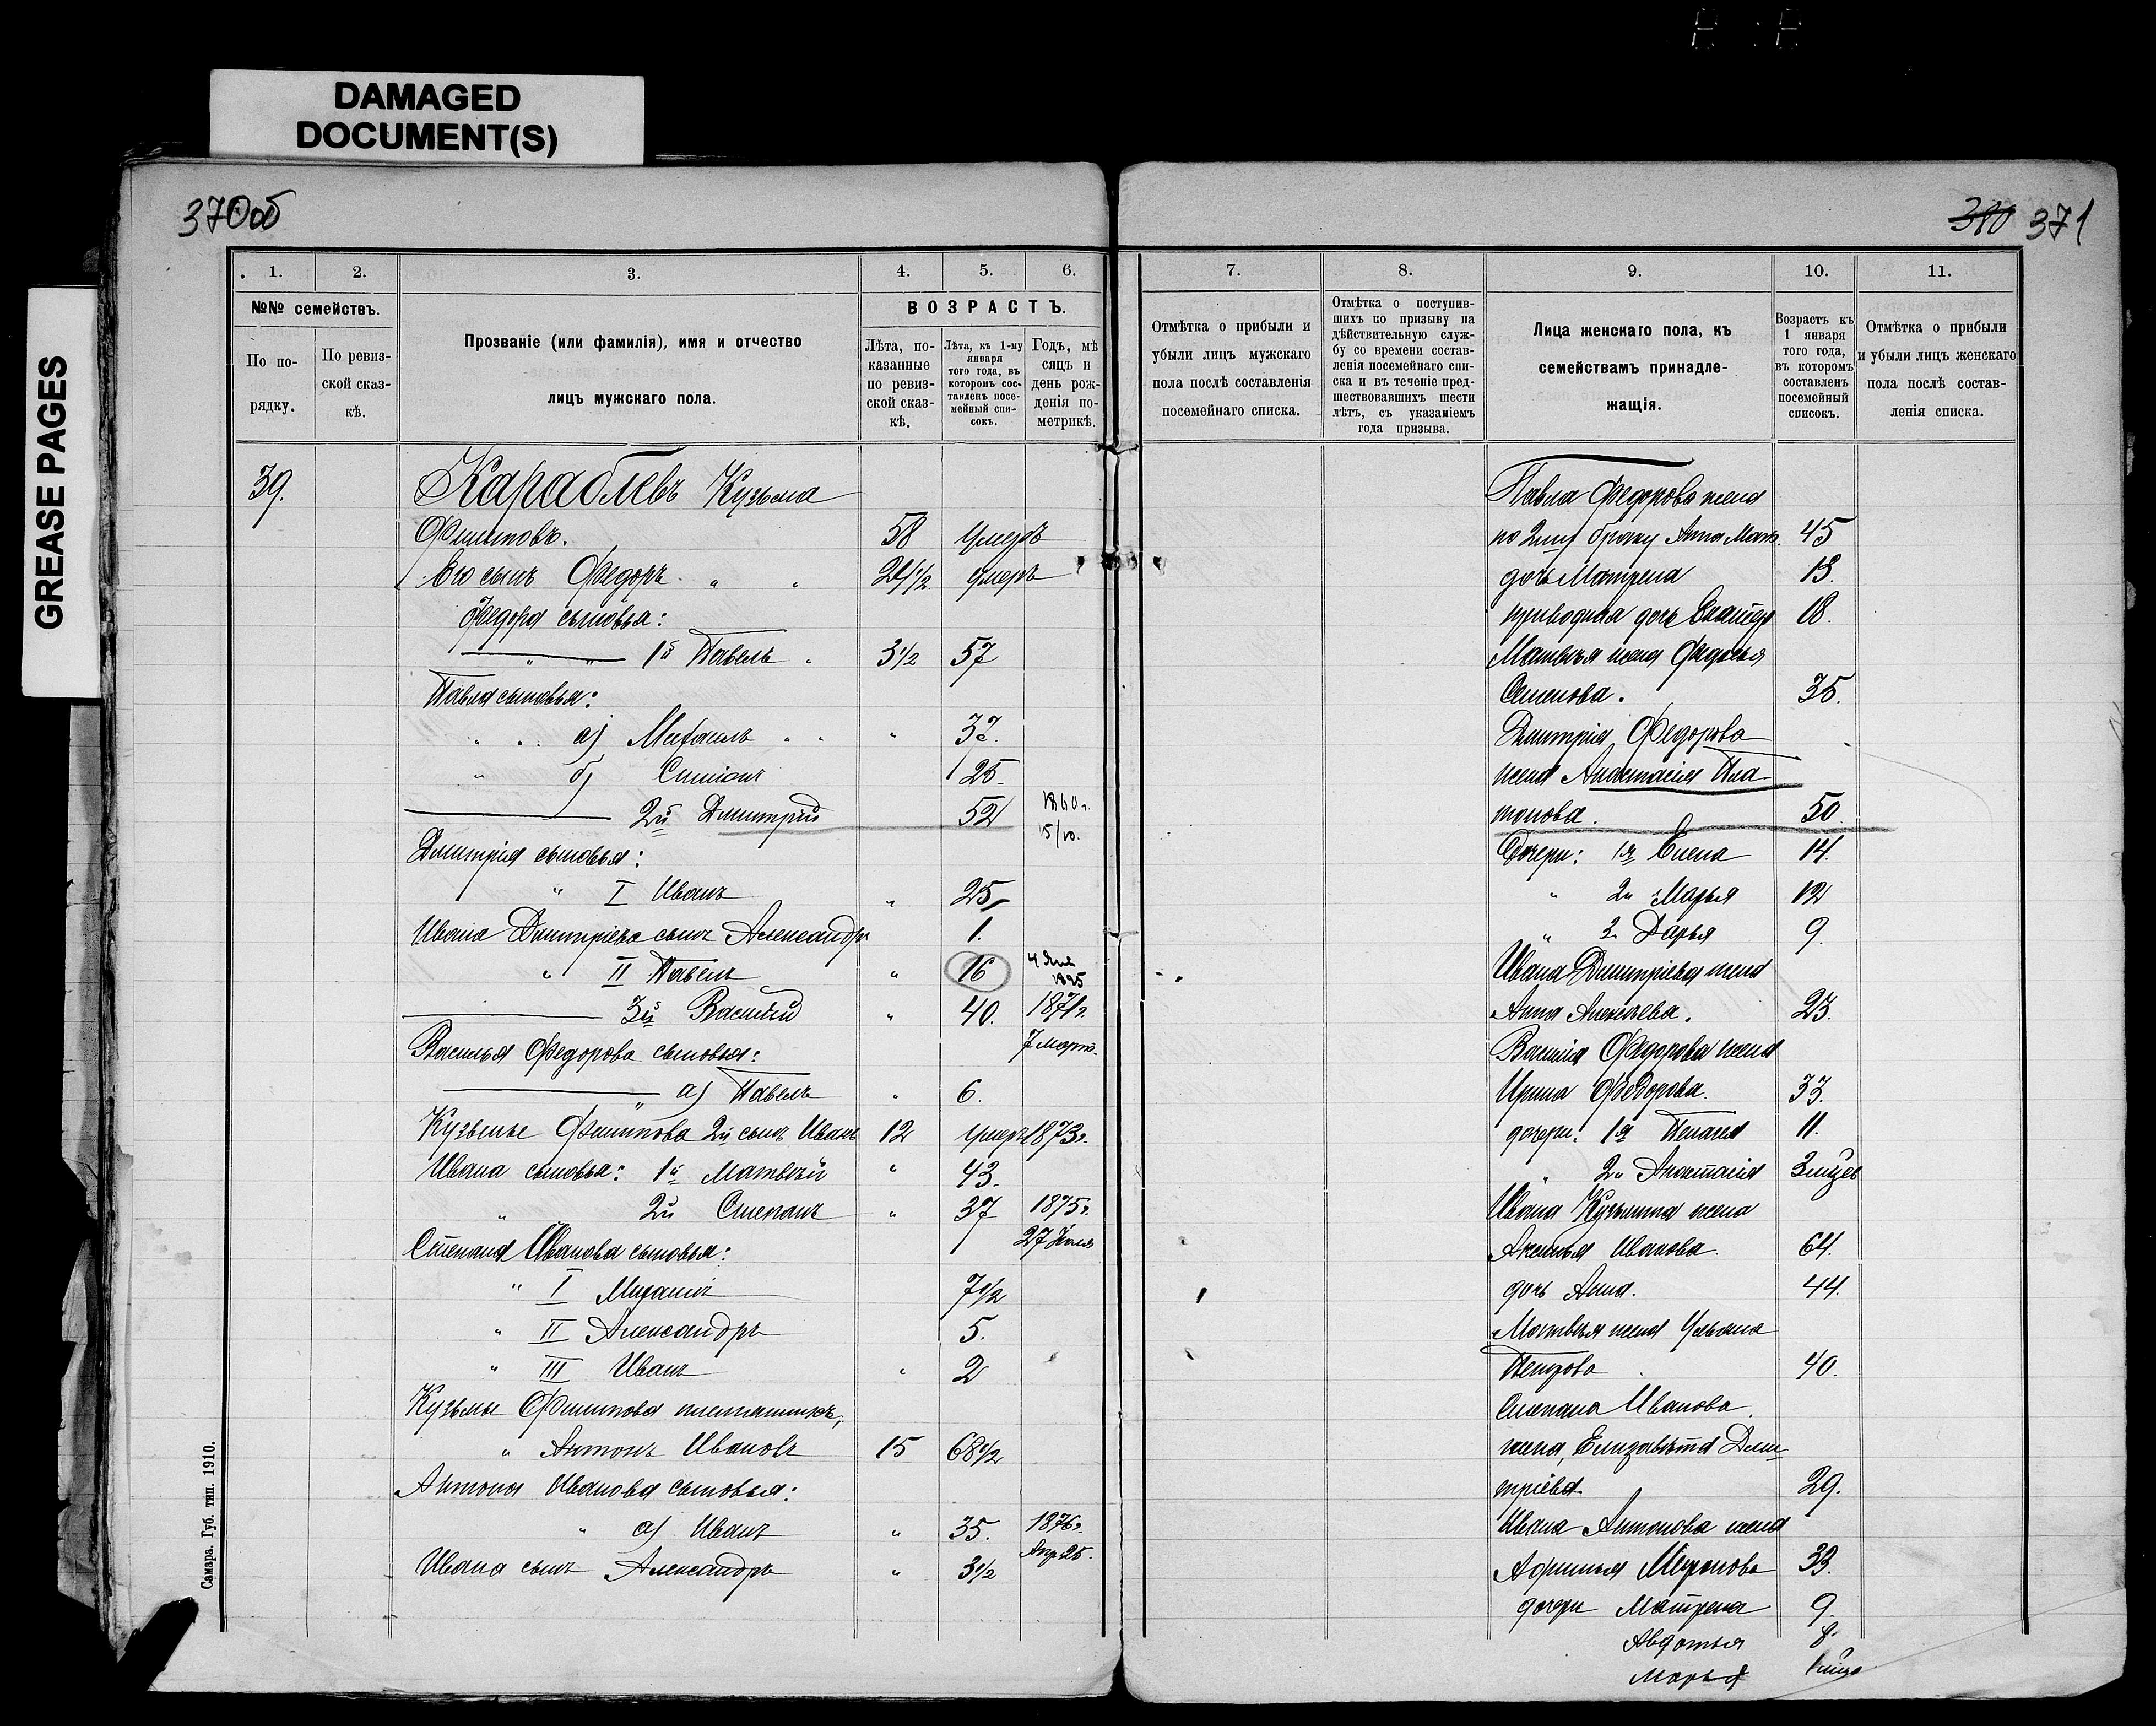 DAMAGED
DOCUMENT(S)
GREASE PAGES
370об
1. 2. 3. 4. 5. 6.
№№ семействъ.
По по-
рядку.
По ревиз-
ской сказ-
кѣ.
Прозваніе (или фамилія), имя и отчество
лицъ мужскаго пола.
ВОЗРАСТЪ.
Лѣта, по-
казанные
по ревиз-
ской сказ-
кѣ.
Лѣта, къ 1-му
января
того года, въ
которомъ сос-
тавленъ посе-
мейный спи-
сокъ.
Годъ, мѣ
сяцъ и
день рож-
денія по-
метрикѣ.
39. Караблевъ Кузьма
Филиповъ. 58 умеръ
Его сынъ Федоръ " " 24 1/2 умеръ
Федора сыновья:
" " 1й Павелъ " 3 1/2 57
Павла сыновья:
" " а) Михаилъ " " " 37.
" б) Симіонъ 25.
2й Дмитрій 52 1860г.
5/10.
Дмитрія сыновья:
" I Иванъ " 25
Ивана Дмитріева сынъ Александръ 1.
" II Павелъ " 16 4 Янв
1895
3й Василій " 40. 1871г.
7 Март.
Василья Федорова сыновья:
" а) Павелъ " 6.
Кузьмы Филипова 2й сынъ Иванъ 12 умеръ 1873г.
Ивана сыновья: 1й Матвѣй " 43.
" 2й Степанъ " 37 1875г.
27 Іюля
Степана Иванова сыновья:
" I Михаилъ 7 1/2
" II Александръ 5.
" III Иванъ " 2
Кузьмы Филипова племянникъ,
" Антонъ Ивановъ 15 68 1/2
Антона Иванова сыновья:
" а) Иванъ " 35. 1876г.
Апр 25.
Ивана сынъ Александръ " 3 1/2
Самара. Губ. тип. 1910.
380 371
7. 8. 9. 10. 11.
Отмѣтка о прибыли и
убыли лицъ мужскаго
пола послѣ составленія
посемейнаго списка.
Отмѣтка о поступив-
шихъ по призыву на
дѣйствительную служ-
бу со времени состав-
ленія посемейнаго спи-
ска и въ теченіе пред-
шествовавшихъ шести
лѣтъ, съ указаніемъ
года призыва.
Лица женскаго пола, къ
семействамъ принадле-
жащія.
Возрастъ къ
1 января
того года,
въ которомъ
составленъ
посемейный
списокъ.
Отмѣтка о прибыли
и убыли лицъ женскаго
пола послѣ состав-
ленія списка.
Павла Федорова жена
по 2му браку Анна Матв. 45
дочь Матрена 13.
приводная дочь 18.
Матвѣя жена Федосья
Семенова. 35.
Дмитрія Федорова
жена Анастасія Пла
тонова. 50.
Дочери: 1я Елена 14.
" 2я Марья 12
" 3 Дарья 9.
Ивана Дмитріева жена
Анна Алексѣева. 23.
Василія Федорова жена
Ирина Федорова. 33.
дочери: 1я Пелагея 11.
" 2я Анастасія 3 мѣсев
Ивана Кузьмина жена
Аксинья Иванова. 64.
дочь Анна. 44.
Матвѣя жена Ульяна
Петрова 40.
Степана Иванова
жена, Елизавѣта Дми-
тріева 29.
Ивана Антонова жена
Афимья Миронова 33.
дочери Матрена 9.
Авдотья 8.
Марья